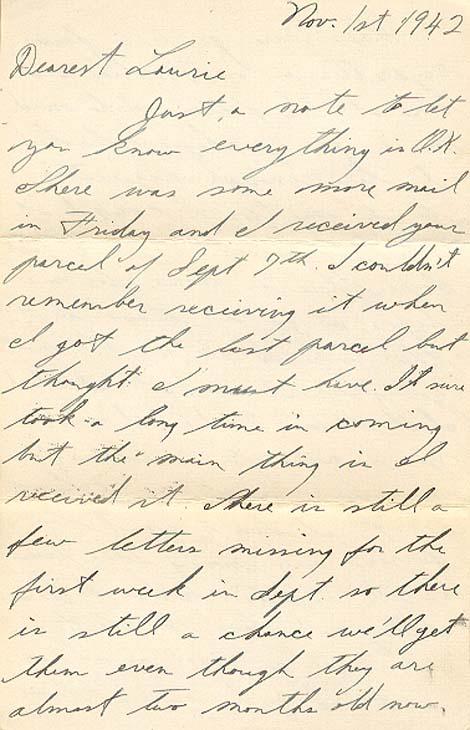 Nov. 1st 1942
Dearest Laurie
Just a note to let
you know everything is O.K.
There was some more mail
in Friday and I received your
parcel of Sept 7th. I couldn't
remember receiving it when
I got the last parcel but
thought I must have. It sure
took a long time in coming
but the main thing is I
received it. There is still a
few letters missing for the
first week in Sept. so there
is still a chance we'll get
them even though they are
almost two months old now.